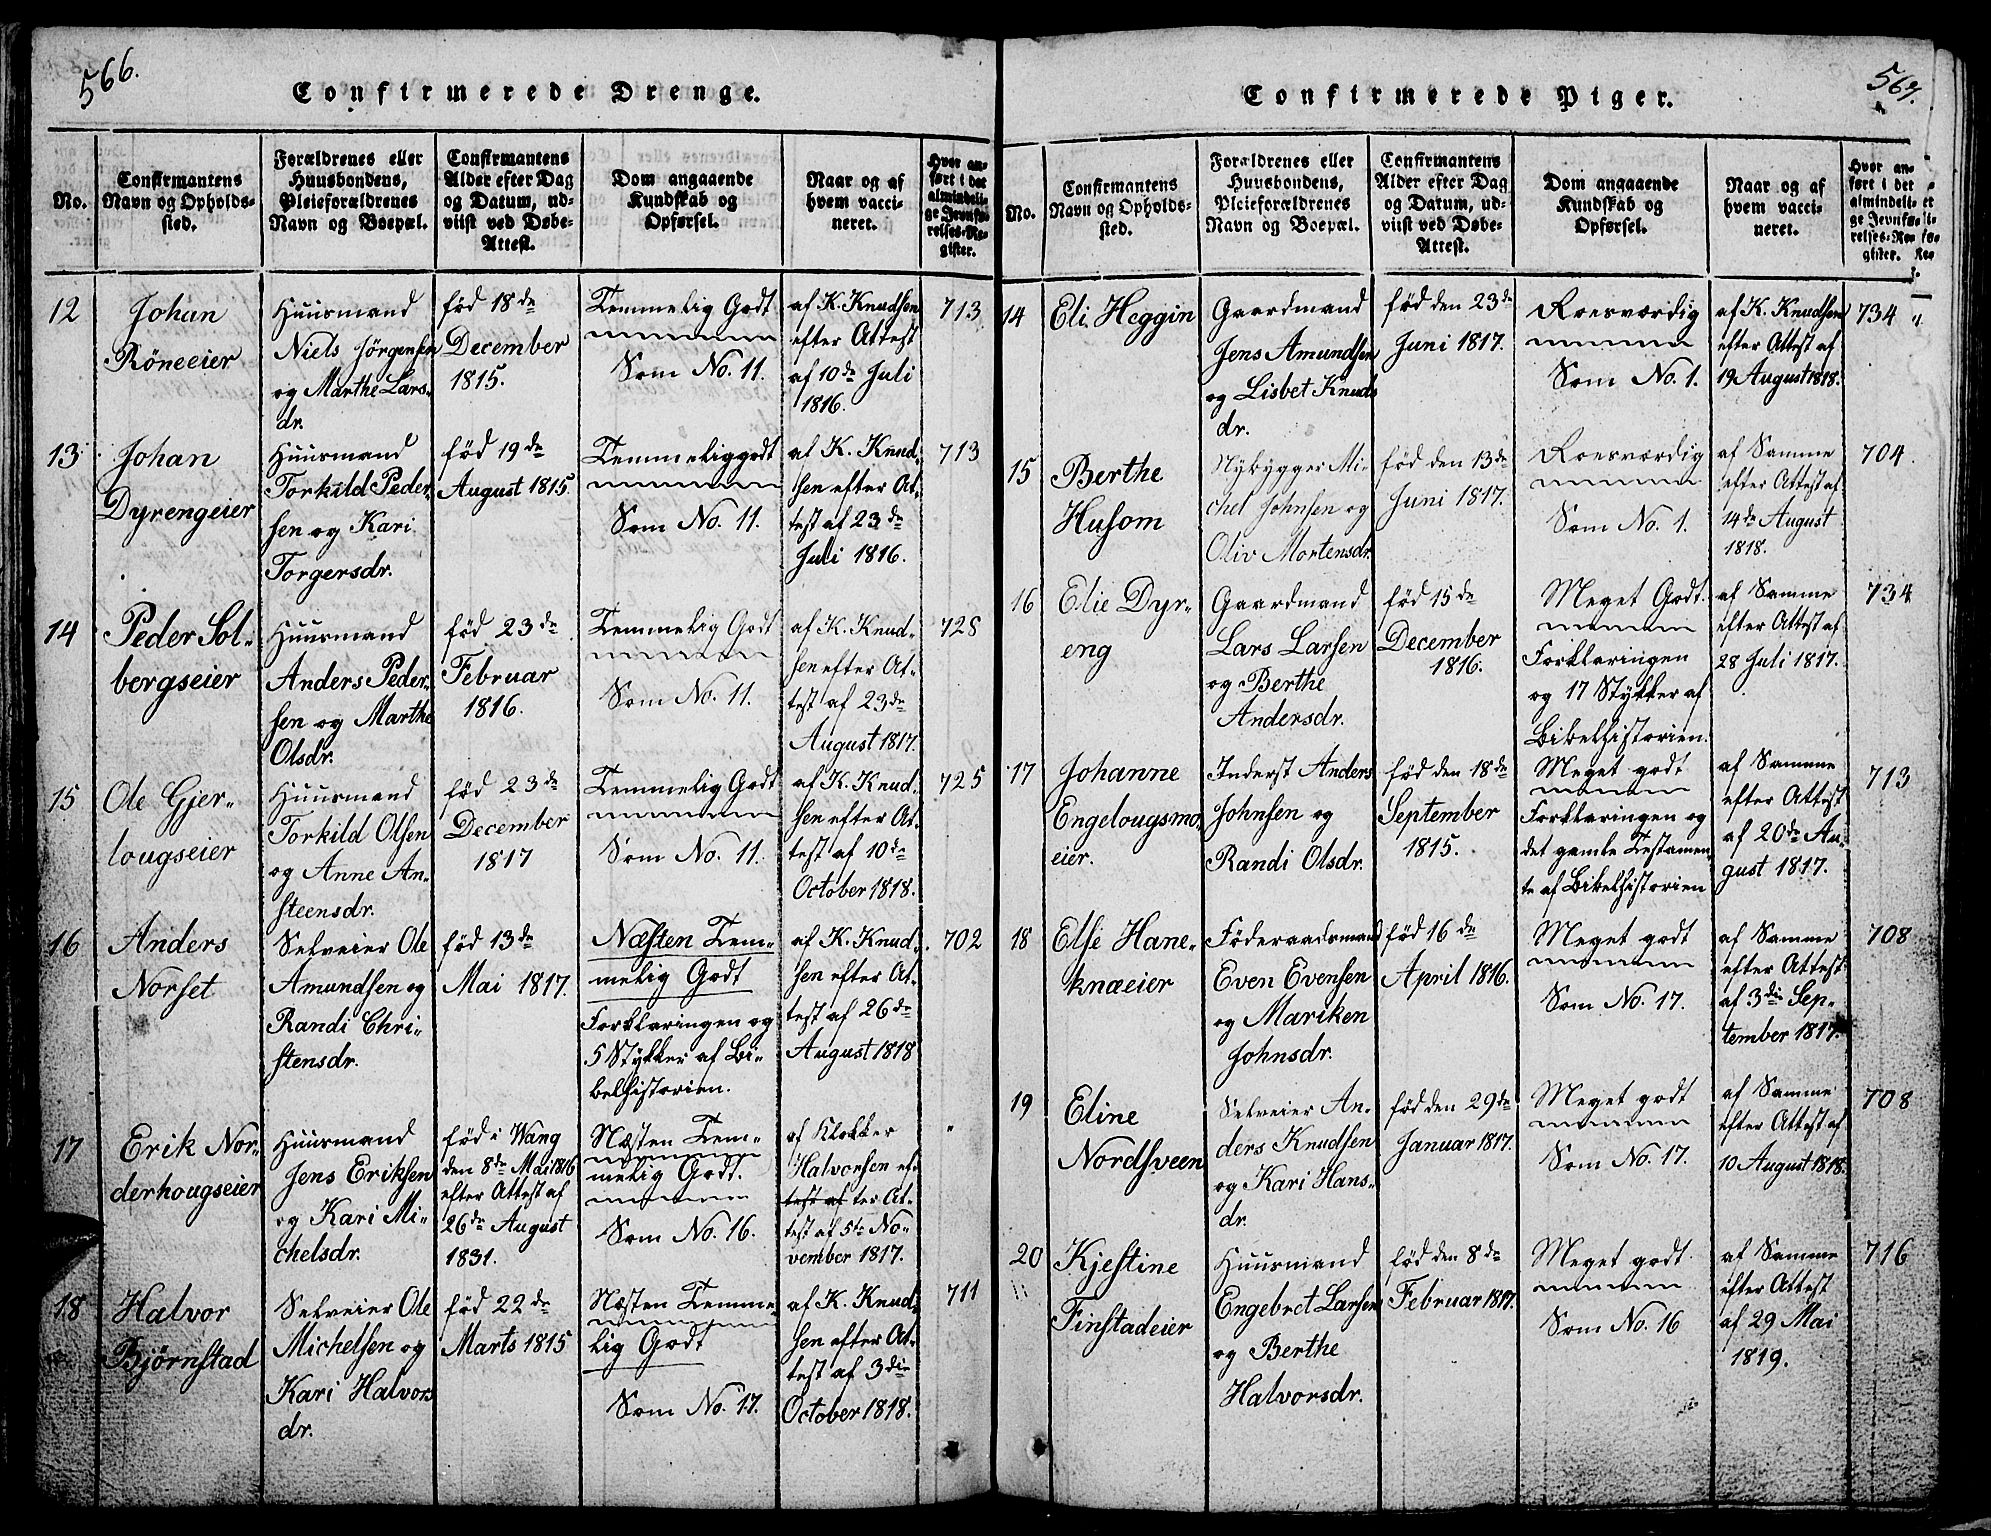 566.
Confirmerede Drenge.
No.
Confirmantens Navn og Opholdssted.
Forældrenes eller Huusbondens, Pleieforældrenes Navn og Boepæl.
Confirmantens Alder efter Dag og Datum, udviist ved Døbe-Attest.
Dom angaaende Kundskab og Opførsel.
Naar og af hvem vaccineret.
Hvor anført i det almindelige Jevnførelses-Register.
12
Johan
Röneeier
Huusmand
Niels Jörgensen
og Marthe Lars-
dr.
föd 18de
December
1815.
Temmelig Godt
Som No. 11.
af K. Knudsen
efter Attest
af 10de Juli
1816.
713
13
Johan
Dyrengeier
Huusmand
Torkild Peder-
sen og Kari
Torgersdr.
föd 19de
August 1815.
Temmelig godt
Som No. 11.
af K. Knud-
sen efter At-
test af 23de
Juli 1816.
713
14
Peder Sol-
bergseier
Huusmand
Anders Peder-
sen og Marthe
Olsdr.
föd 23de
Februar
1816.
Temmelig Godt
Som No. 11.
af K. Knud-
sen efter At-
test af 23de
August 1817.
728
15
Ole Gjer-
lougseier
Huusmand
Torkild Olsen
og Anne An-
steensdr.
föd 23de
December
1817
Temmelig Godt
Som No. 11.
af K. Knud-
sen efter At-
test af 10de
October 1818.
725
16
Anders
Norset
Selveier Ole
Amundsen og
Randi Chri-
stensdr.
föd 13de
Mai 1817.
Næsten Tem-
melig Godt
Forklaringen og
5 Stykker af Bi-
belhistorien.
af K. Knud-
sen efter At-
test af 26de
August 1818
702
17
Erik Nor-
derhougseier
Huusmand
Jens Eriksen
og Kari Mi-
chelsdr.
föd i Wang
den 8de Mai 1816
efter Attest af
26de August
1831.
Næsten Tem-
melig Godt.
Som No. 16.
af Klokker
Halvorsen ef-
test af ter At-
test af 5te No-
vember 1817.
"
18
Halvor
Björnstad
Selveier Ole
Michelsen og
Kari Halvors
dr.
föd 22de
Marts 1815
Næsten Temme-
lig Godt
Som No. 17.
af K. Knud-
sen efter At-
test af 3die
October 1818.
711
567.
Confirmerede Piger.
No.
Confirmantens Navn og Opholdssted.
Forældrenes eller Huusbondens, Pleieforældrenes Navn og Boepæl.
Confirmantens Alder efter Dag og Datum, udviist ved Døbe-Attest.
Dom angaaende Kundskab og Opførsel.
Naar og af hvem vaccineret.
Hvor anført i det almindelige Jevnførelses-Register.
14
Eli Heggin
Gaardmand
Jens Amundsen
og Lisbet Knuds
dr.
föd den 23de
Juni 1817.
Roesværdig
Som No. 1.
af K. Knudsen
efter Attest af
19 August 1818.
734
15
Berthe
Husom
Nybygger Mi-
chel Johnsen og
Oliv Mortensdr.
föd den 13de
Juni 1817.
Roesværdig
Som No. 1.
af Samme
efter Attest af
14de August
1818.
704
16
Elie Dyr-
eng
Gaardmand
Lars Larsen
og Berthe
Andersdr.
föd 15de
December
1816.
Meget Godt.
Forklaringen
og 17 Stykker af
Bibelhistorien.
af Samme
efter Attest af
28 Juli 1817.
734
17
Johanne
Engelougsmo-
eier.
Inderst Anders
Johnsen og
Randi Olsdr.
föd den 18de
September
1815.
Meget godt
Forklaringen og
det gamle Testamen-
te af Bibelhistorien
af Samme
efter Attest
af 20de Au-
gust 1817.
713
18
Else Hane-
knæeier
Föderaadsmand
Even Evensen
og Mariken
Johnsdr.
föd 16de
April 1816.
Meget godt
Som No. 17.
af Samme
efter Attest
af 3die Sep-
tember 1817.
708
19
Eline
Nordsveen
Selveier An-
ders Knudsen
og Kari Hans-
dr.
föd den 29de
Januar 1817.
Meget godt
Som No. 17.
af Samme
efter Attest af
10 August 1818.
708
20
Kjestine
Finstadeier
Huusmand
Engebret Larsen
og Berthe
Halvorsdr.
föd den 8de
Februar 1817.
Meget godt.
Som No. 16
af Samme
efter Attest
af 29 Mai
1819.
716